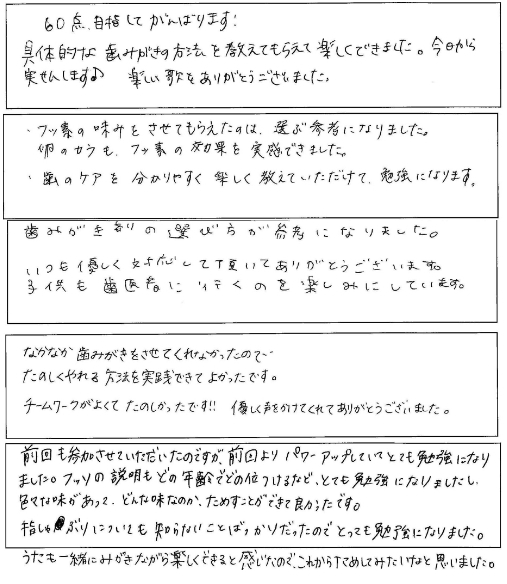 60点、目指してがんばります!
具体的な歯みがきの方法を教えてもらえて楽しくできました。今日から
実せんします♪ 楽しい歌をありがとうございました。
・フッ素の味みをさせてもらえたのは、選ぶ参考になりました。
卵のカラも、フッ素の効果を実感できました。
・歯のケアを分かりやすく楽しく教えていただけて、勉強になります。
歯みがき剤の選び方が参考になりました。
いつも優しく対応して頂いてありがとうございます。
子供も歯医者に行くのを楽しみにしています。
なかなか歯みがきをさせてくれなかったので…
たのしくやれる方法を実践できてよかったです。
チームワークがよくてたのしかったです!! 優しく声をかけてくれてありがとうございました。
前回も参加させていただいたのですが、前回よりパワーアップしていてとても勉強になり
ました。フッソの説明もどの年齢でどの位つけるなど、とても勉強になりましたし、
色々な味があって、どんな味なのか、ためすことができて良かったです。
指しゃぶりについても知らないことばっかりだったのでとっても勉強になりました。
うたも一緒にみがきながら楽しくできると感じたので、これからためしてみたいなと思いました。